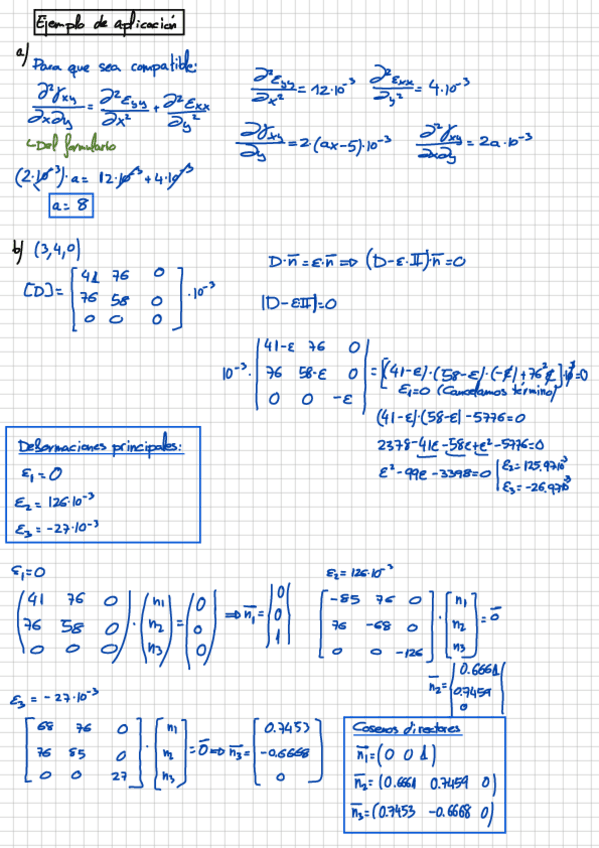 Ejemplo de aplicación
a) Para que sea compatible:
∂²γxy/∂x∂y = ∂²εyy/∂x² + ∂²εxx/∂y²
∂²εyy/∂x² = 12·10⁻³ ∂²εxx/∂y² = 4·10⁻³
↳Del formulario
∂γxy/∂y = 2·(ax-5)·10⁻³ ∂²γxy/∂x∂y = 2a·10⁻³
(2·10⁻³)·a = 12·10⁻³ + 4·10⁻³
a = 8
b) (3,4,0)
D·n̄ = ε·n̄ ⇒ (D-ε·II)·n̄ = 0
[D] = [41 76 0
76 58 0
0 0 0] ·10⁻³
|D-εII| = 0
10⁻³· |41-ε 76 0
76 58-ε 0
0 0 -ε| = [(41-ε)·(58-ε)·(-ε)+76²ε]·10⁻³=0
ε₁=0 (Cancelamos término)
(41-ε)·(58-ε)-5776=0
2378-41ε-58ε+ε²-5776=0
ε²-99ε-3398=0 | ε₂=125.97·10⁻³
ε₃=-26.97·10⁻³
Deformaciones principales:
ε₁ = 0
ε₂ = 126·10⁻³
ε₃ = -27·10⁻³
ε₁=0
(41 76 0
76 58 0
0 0 0) · (n₁
n₂
n₃) = (0
0
0) ⇒ n̄₁ = |0
0
1|
ε₂=126·10⁻³
[-85 76 0
76 -68 0
0 0 -126] · [n₁
n₂
n₃] = 0̄
n̄₂ = |0.6661
0.7459
0|
ε₃ = -27·10⁻³
[68 76 0
76 85 0
0 0 27] · [n₁
n₂
n₃] = 0̄ ⇒ n̄₃ = [0.7453
-0.6668
0]
Cosenos directores
n̄₁=(0 0 1)
n̄₂=(0.6661 0.7459 0)
n̄₃=(0.7453 -0.6668 0)